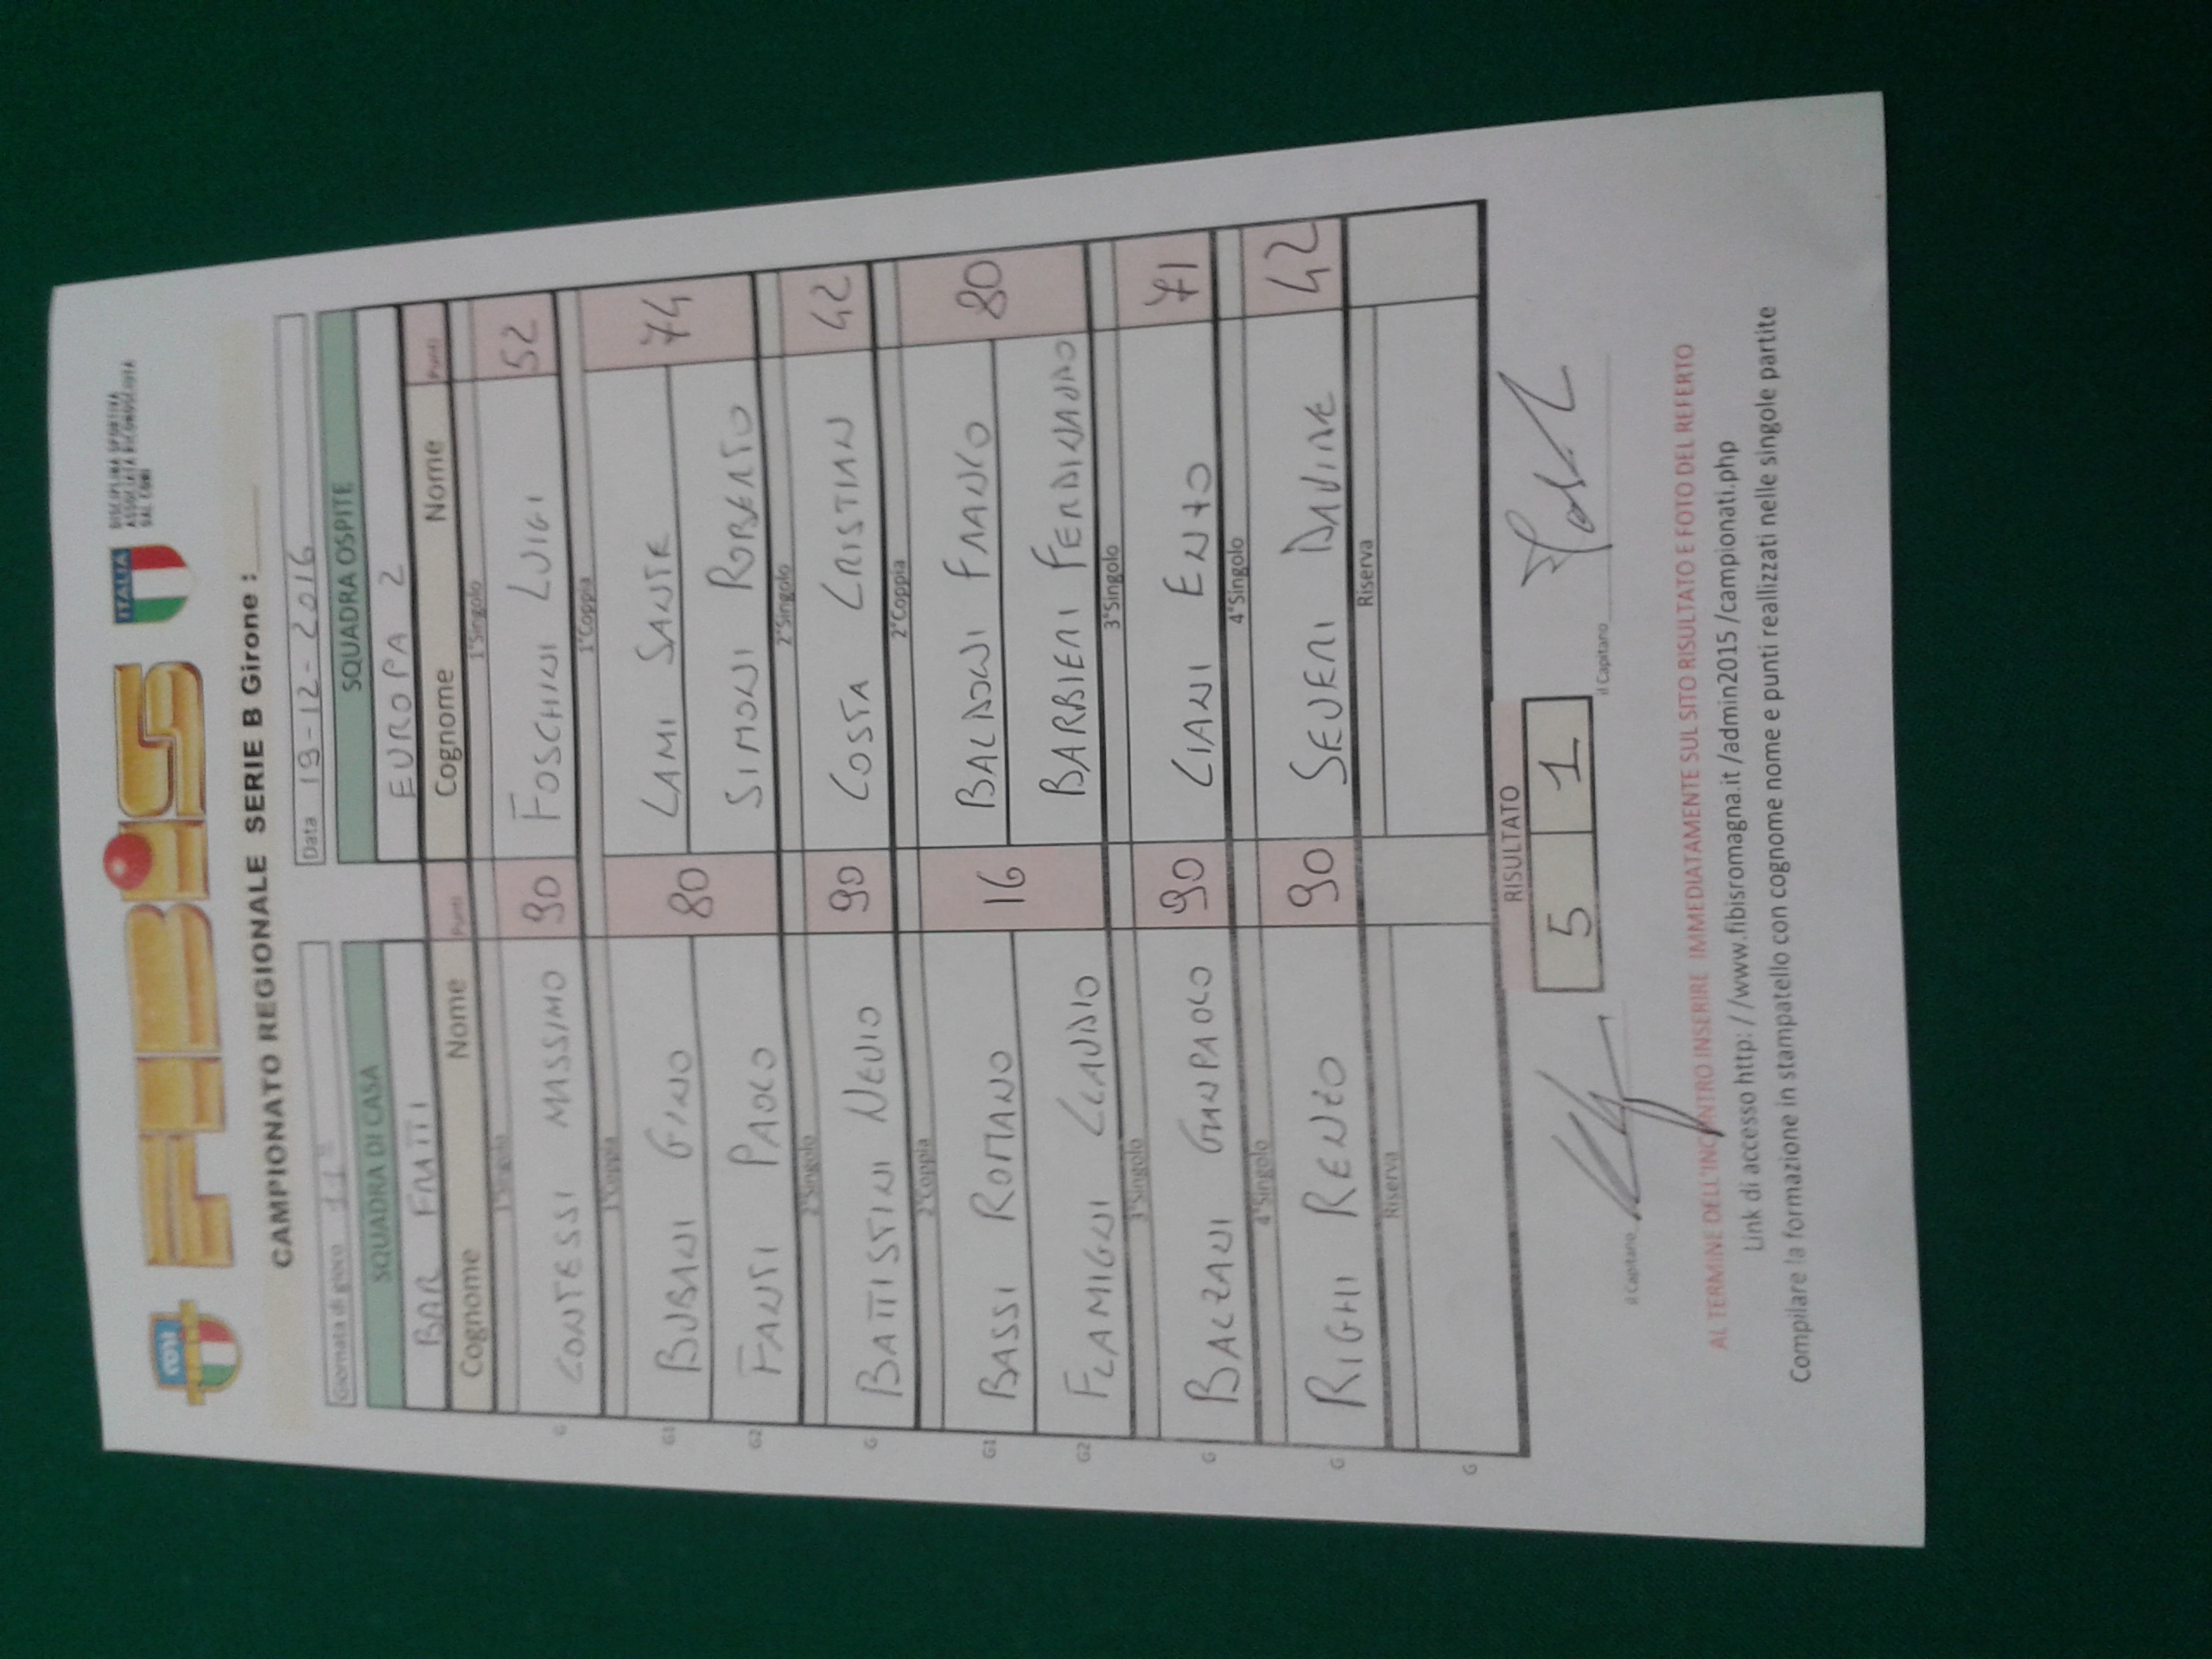 FIBiS
ITALIA
DISCIPLINA SPORTIVA
ASSOCIATA RICONOSCIUTA
DAL CONI
CAMPIONATO REGIONALE SERIE B Girone :
Giornata di gioco 11ª Data 19-12-2016
SQUADRA DI CASA SQUADRA OSPITE
BAR FRATTI EUROPA 2
Cognome Nome Punti Cognome Nome Punti
1°Singolo 1°Singolo
G CONTESSI MASSIMO 90 FOSCHINI LUIGI 52
1°Coppia 1°Coppia
G1 BUBANI GINO 80 LAMI SANTE 74
G2 FANTI PAOLO SIMONI ROBERTO
2°Singolo 2°Singolo
G BATTISTINI NEVIO 90 COSTA CRISTIAN 42
2°Coppia 2°Coppia
G1 BASSI ROMANO 16 BALDONI FRANCO 80
G2 FLAMIGNI CLAUDIO BARBIERI FERDINANDO
3°Singolo 3°Singolo
G BALZANI GIANPAOLO 90 CIANI ENZO 71
4°Singolo 4°Singolo
G RIGHI RENZO 90 SEVERI DAVIDE 42
Riserva Riserva
G
RISULTATO
5 1
il Capitano il Capitano
AL TERMINE DELL'INCONTRO INSERIRE IMMEDIATAMENTE SUL SITO RISULTATO E FOTO DEL REFERTO
Link di accesso http://www.fibisromagna.it/admin2015/campionati.php
Compilare la formazione in stampatello con cognome nome e punti reallizzati nelle singole partite